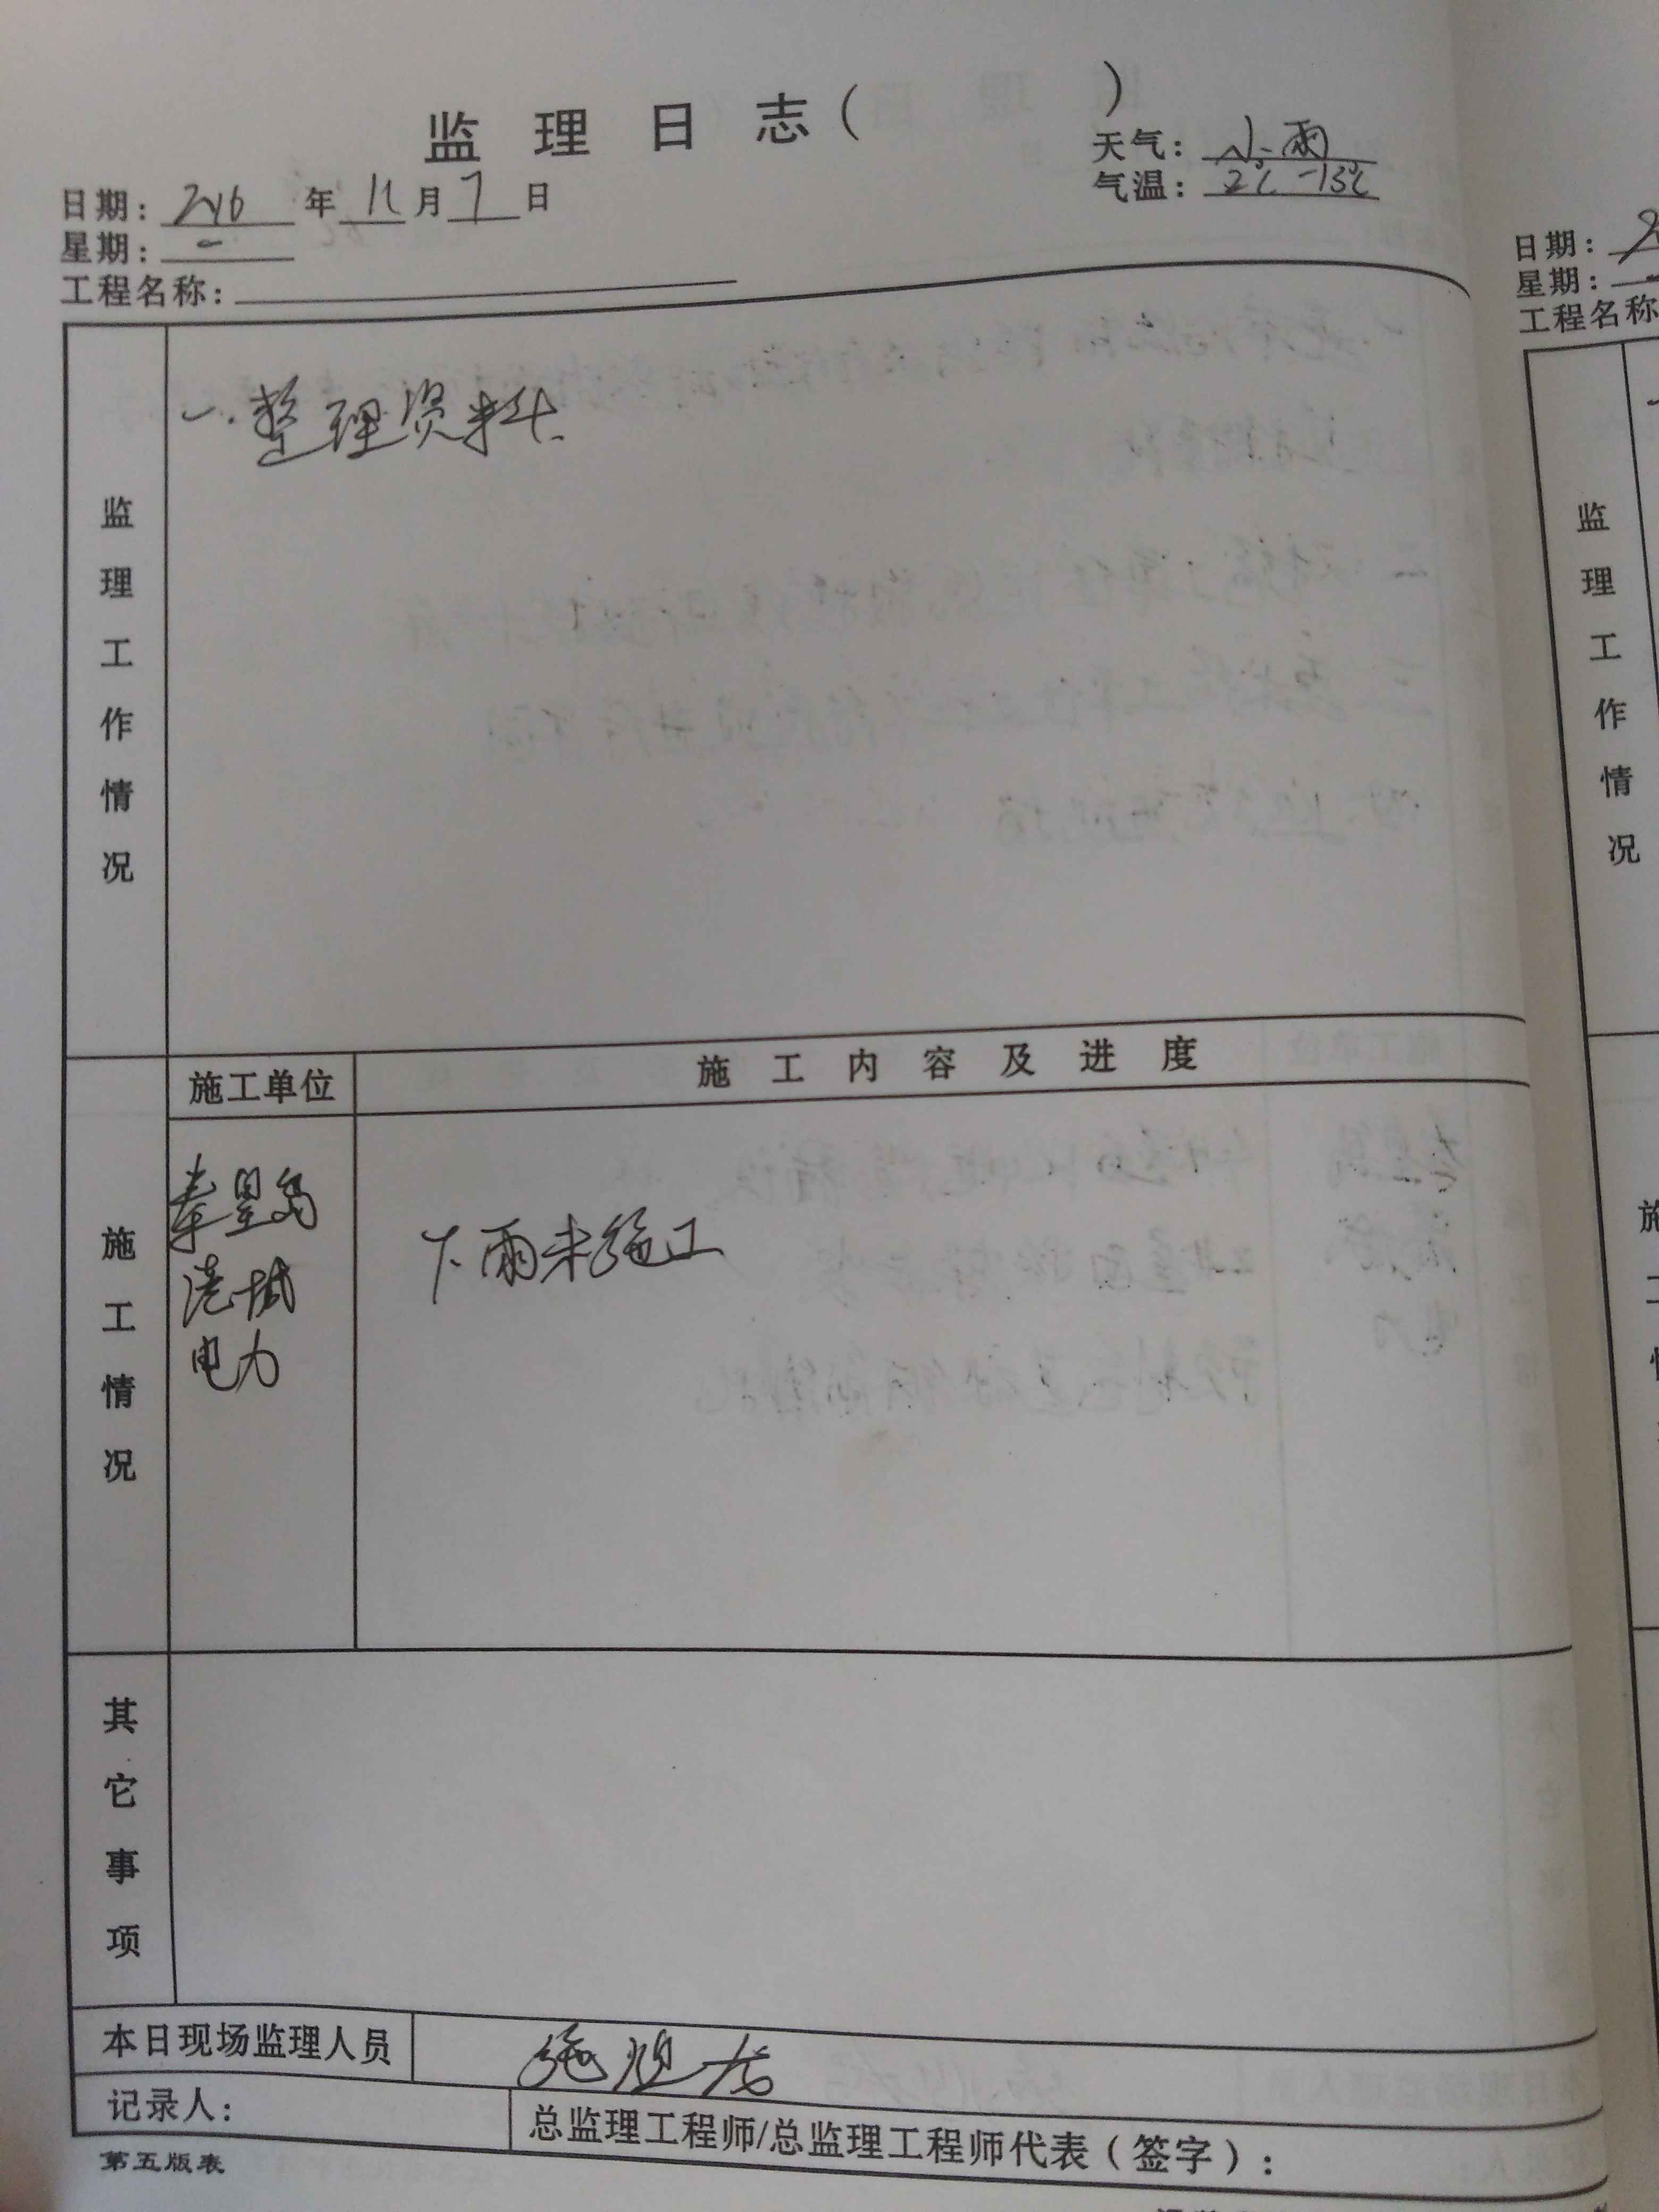 监理日志( )
天气: 小雨
日期: 2016 年 11 月 7 日
气温: 2℃-13℃
星期: 一
工程名称:
监理工作情况
一.整理资料.
施工情况
施工单位
施工内容及进度
秦皇岛
港城
电力
下雨未施工
其它事项
本日现场监理人员
记录人:
总监理工程师/总监理工程师代表(签字):
第五版表
日期:
星期:
工程名称
监理工作情况